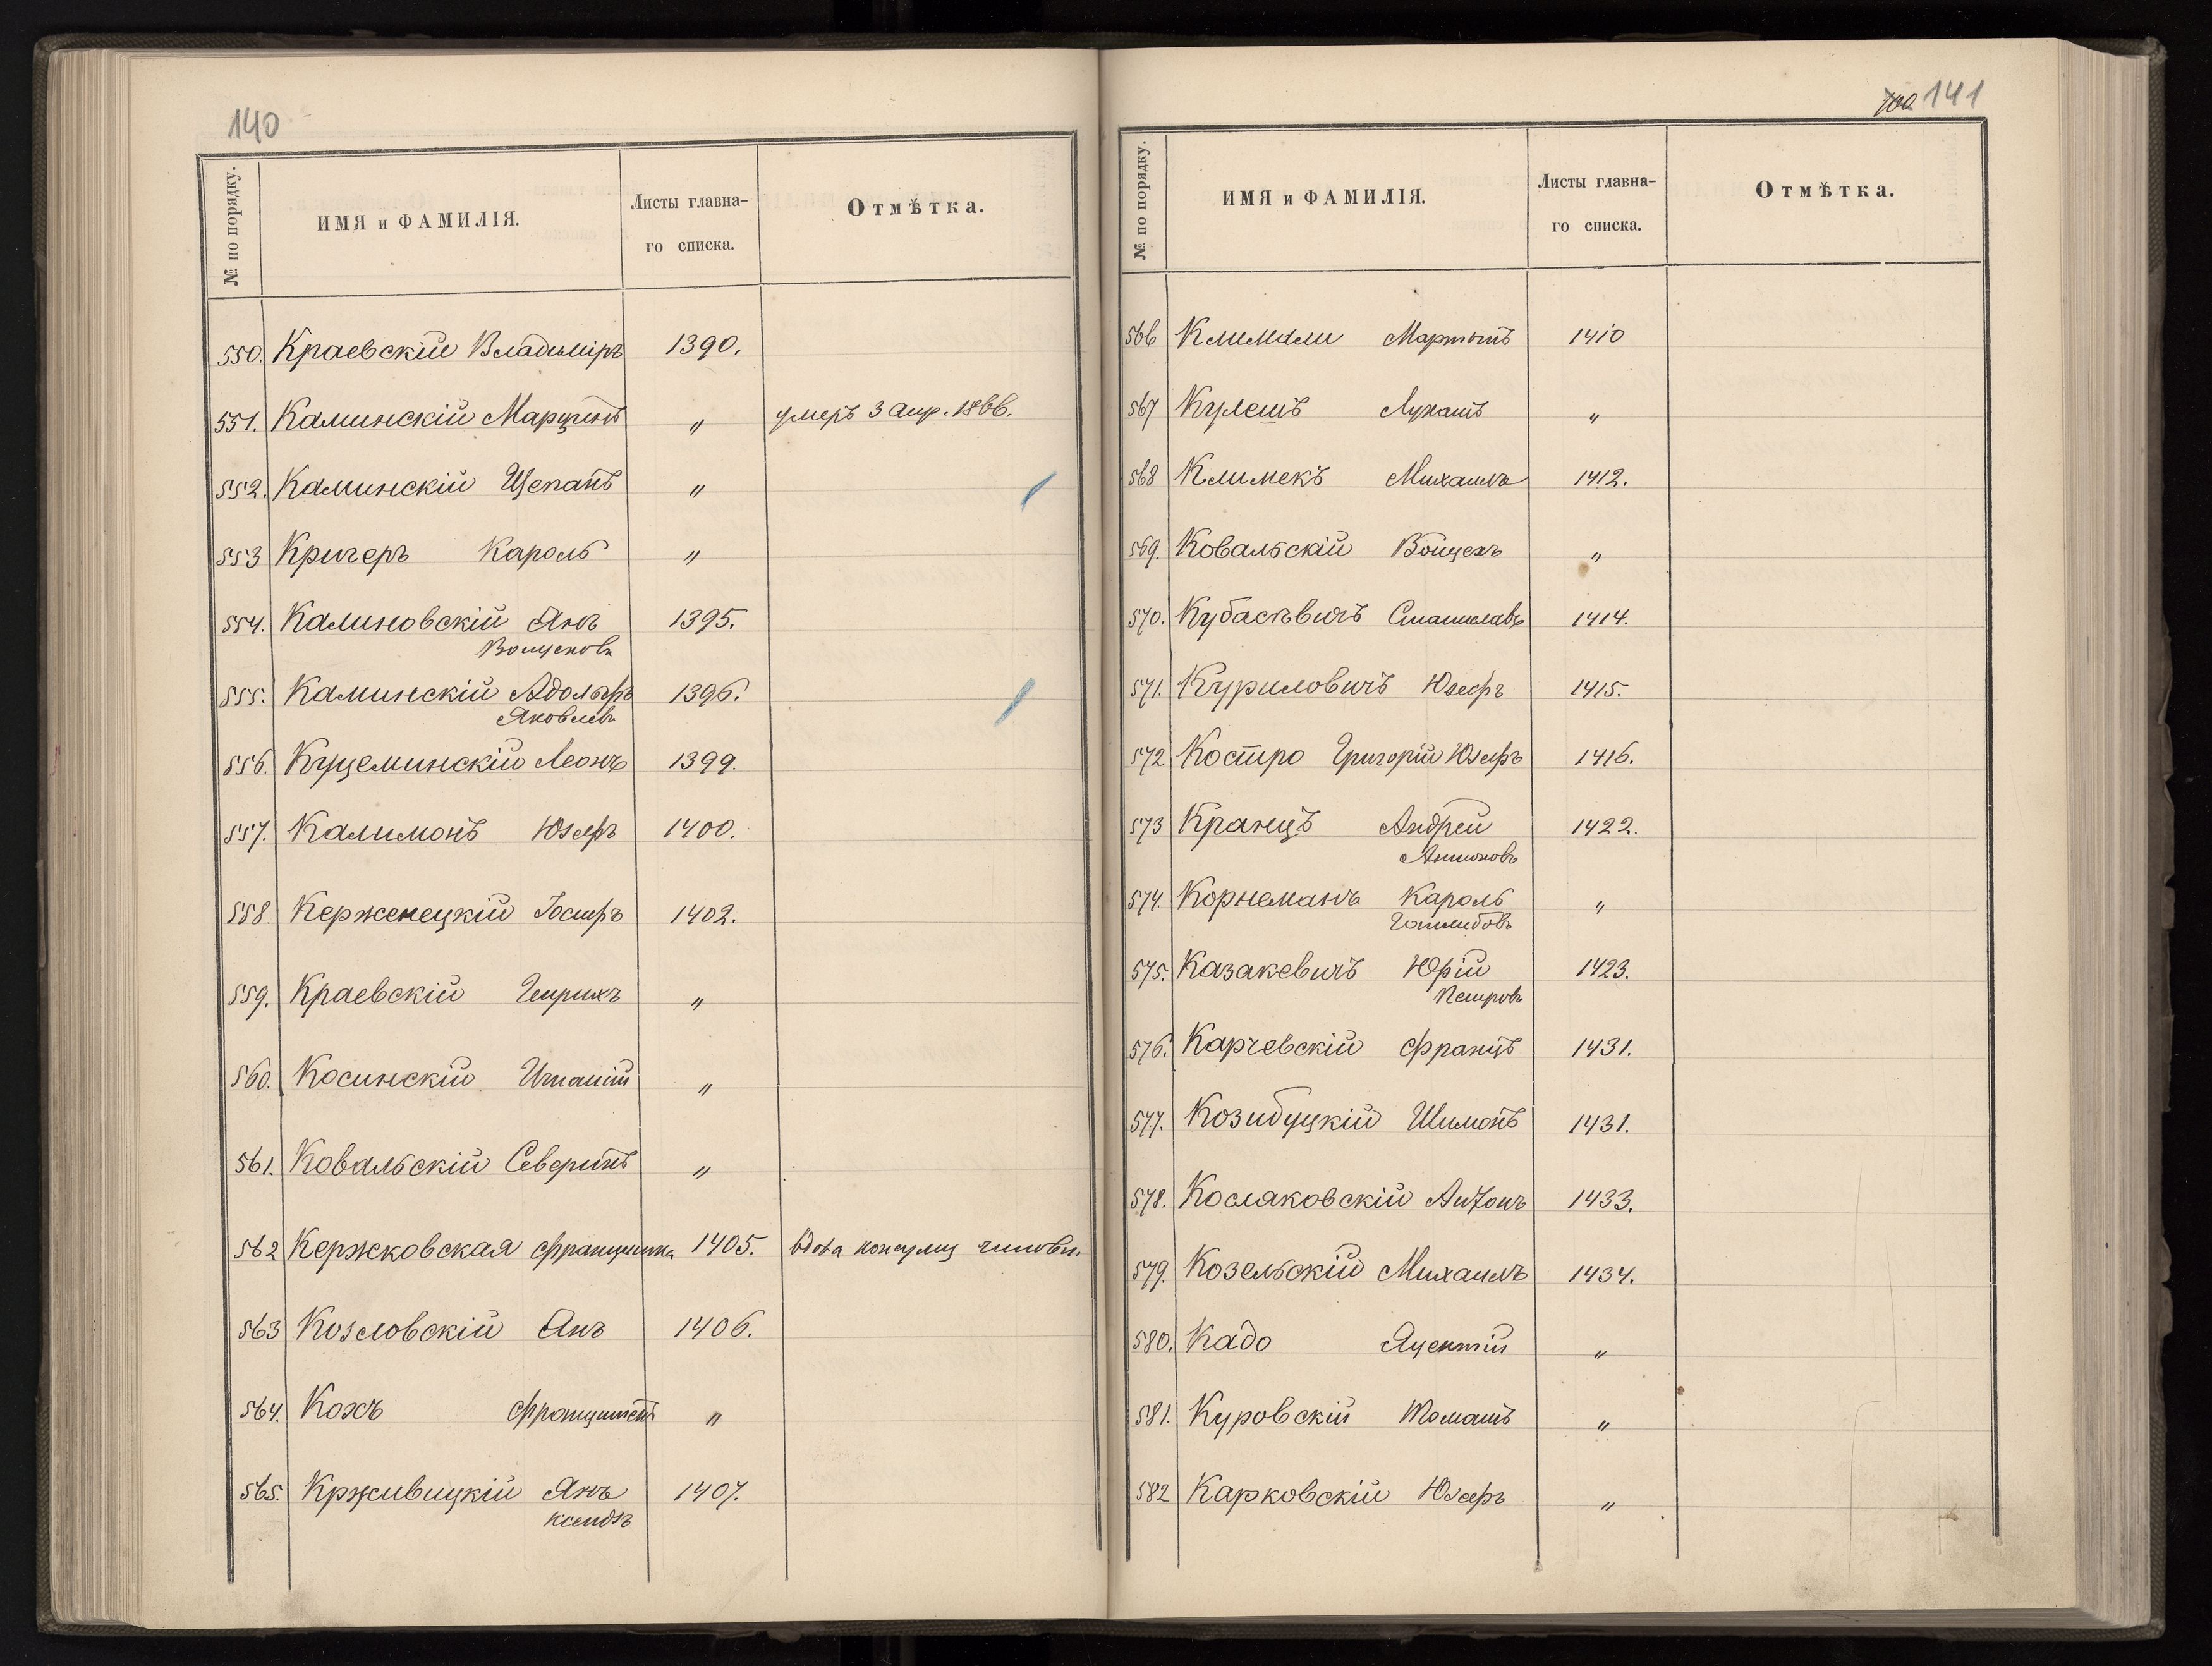 140
№ по порядку. ИМЯ и ФАМИЛІЯ. Листы главна-го списка. Отмѣтка.
550. Краевскій Владиміръ 1390.
551. Каминскій Марцинъ " умеръ 3 апр. 1866.
552. Каминскій Щепанъ "
553 Кригеръ Кароль "
554. Калиновскій Янъ 1395.
Войцеховъ
555. Каминскій Адольфъ 1396.
Яковлевъ
556. Куцеминскій Леонъ 1399.
557. Калимонъ Юзефъ 1400.
558. Керженецкій Іосифъ 1402.
559. Краевскій Генрихъ "
560. Косинскій Игнатій "
561. Ковальскій Северинъ "
562 Кержковская Францишка 1405. вдова чиновн.
563 Козловскій Янъ 1406.
564. Кохъ Францишекъ "
565. Крживицкій Янъ 1407.
ксендзъ
141
№ по порядку. ИМЯ и ФАМИЛІЯ. Листы главна-го списка. Отмѣтка.
566 Мартинъ 1410
567 Кулешъ Лукашъ "
568 Климекъ Михаилъ 1412.
569. Ковальскій Войцехъ "
570. Кубасѣвичъ Станиславъ 1414.
571. Куриловичъ Юзефъ 1415.
572 Костро Григорій Юзефъ 1416.
573 Кранцъ Андрей 1422.
Антоновъ
574. Корнеманъ Кароль "
Готлибовъ
575. Казакевичъ Юрій 1423.
Петровъ
576. Карчевскій Францъ 1431.
577. Козибуцкій Шимонъ 1431.
578. Косляковскій Антонъ 1433.
579. Козельскій Михаилъ 1434.
580. Кадо Яцентій "
581. Куровскій Томашъ "
582 Карковскій Юзефъ "